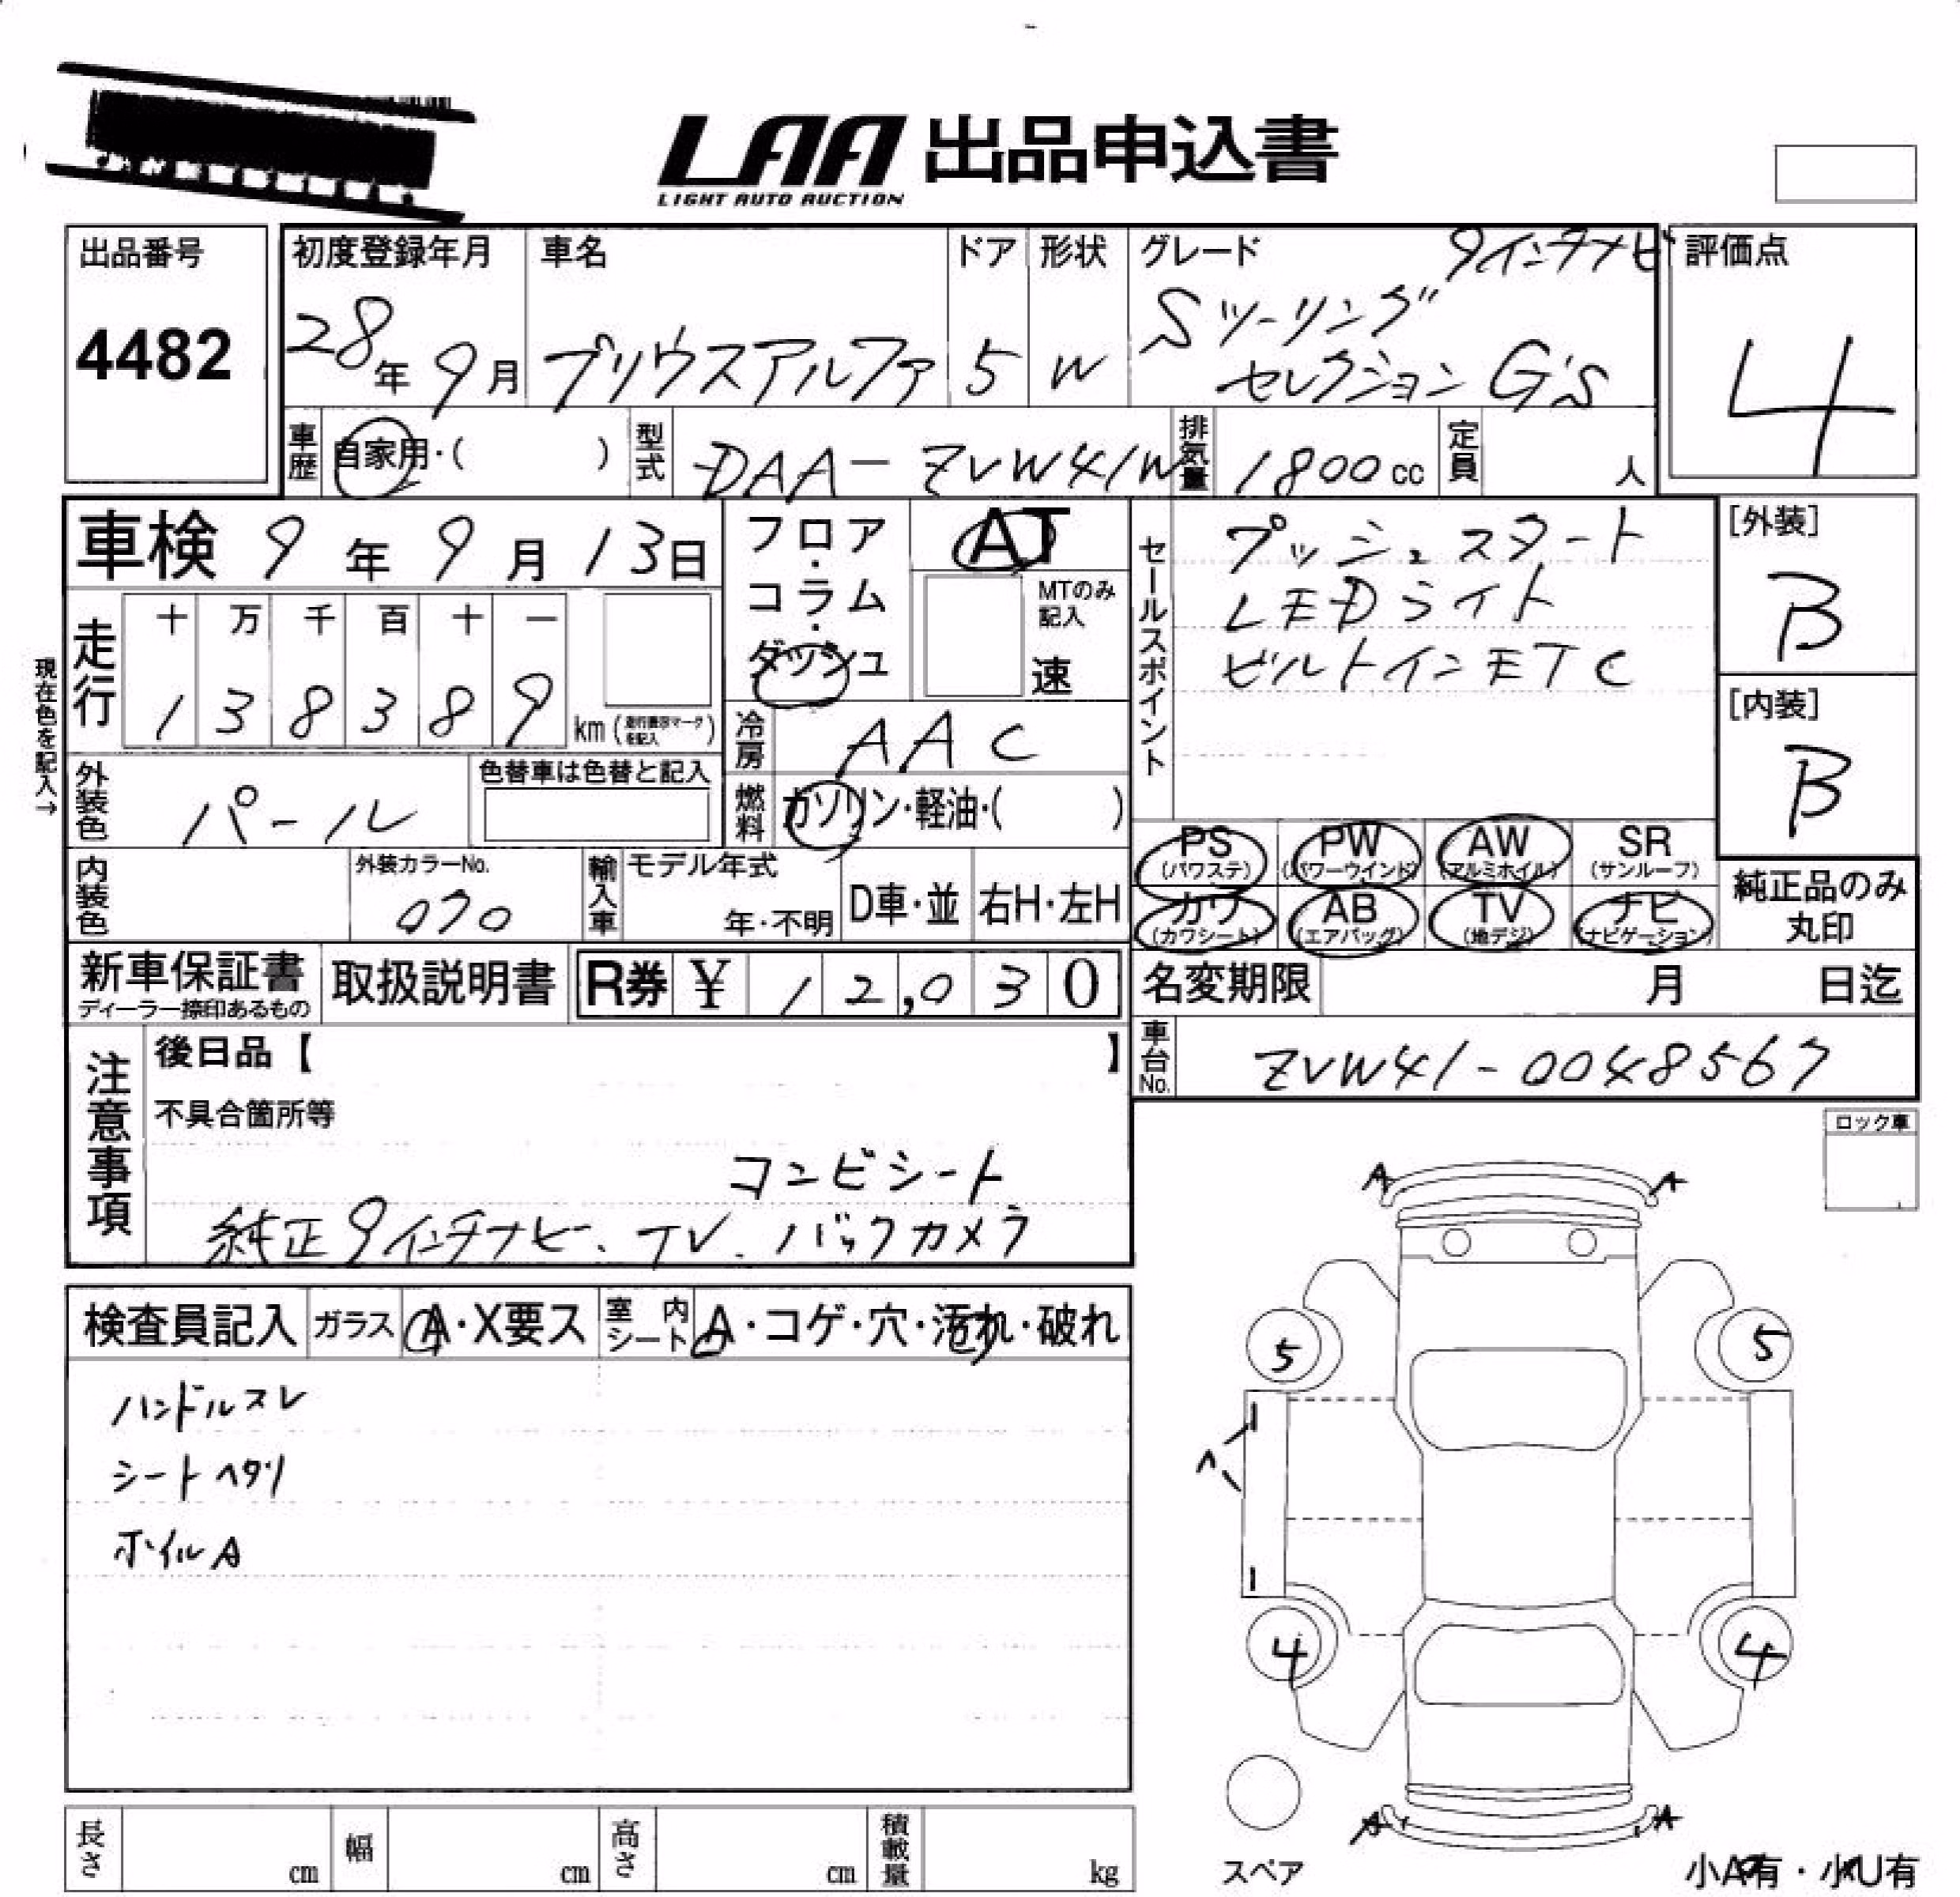 LAA 出品申込書
LIGHT AUTO AUCTION
出品番号
4482
初度登録年月
28年 9月
車名
プリウスアルファ
ドア
5
形状
W
グレード 9インチナビ
Sツーリング
セレクション G's
評価点
4
車歴 自家用・( )
型式 DAA-ZVW41W
排気量 1800cc
定員 人
車検 9年 9月 13日
フロア・コラム・ダッシュ
AT
MTのみ記入
速
セールスポイント
プッシュスタート
LEDライト
ビルトインETC
[外装]
B
[内装]
B
現在色を記入→
走行
十 万 千 百 十 一
1 3 8 3 8 9 km (走行表示マークを記入)
冷房 AAC
外装色 パール
色替車は色替と記入
燃料 ガソリン・軽油・( )
PS (パワステ) PW (パワーウインド) AW (アルミホイル) SR (サンルーフ)
カワ (カワシート) AB (エアバッグ) TV (地デジ) ナビ (ナビゲーション)
純正品のみ
丸印
内装色
外装カラーNo.
070
輸入車
モデル年式
年・不明
D車・並
右H・左H
新車保証書
ディーラー捺印あるもの
取扱説明書
R券 ¥ 12,030
名変期限 月 日迄
車台No. ZVW41-0048567
注意事項
後日品【 】
不具合箇所等
コンビシート
純正9インチナビ、TV、バックカメラ
ロック車
検査員記入 ガラス A・X要ス 室内シート A・コゲ・穴・汚れ・破れ
ハンドルスレ
シートヘタリ
ホイルA
A A
5 5
4 4
A A
スペア
小A有・小U有
長さ cm 幅 cm 高さ cm 積載量 kg